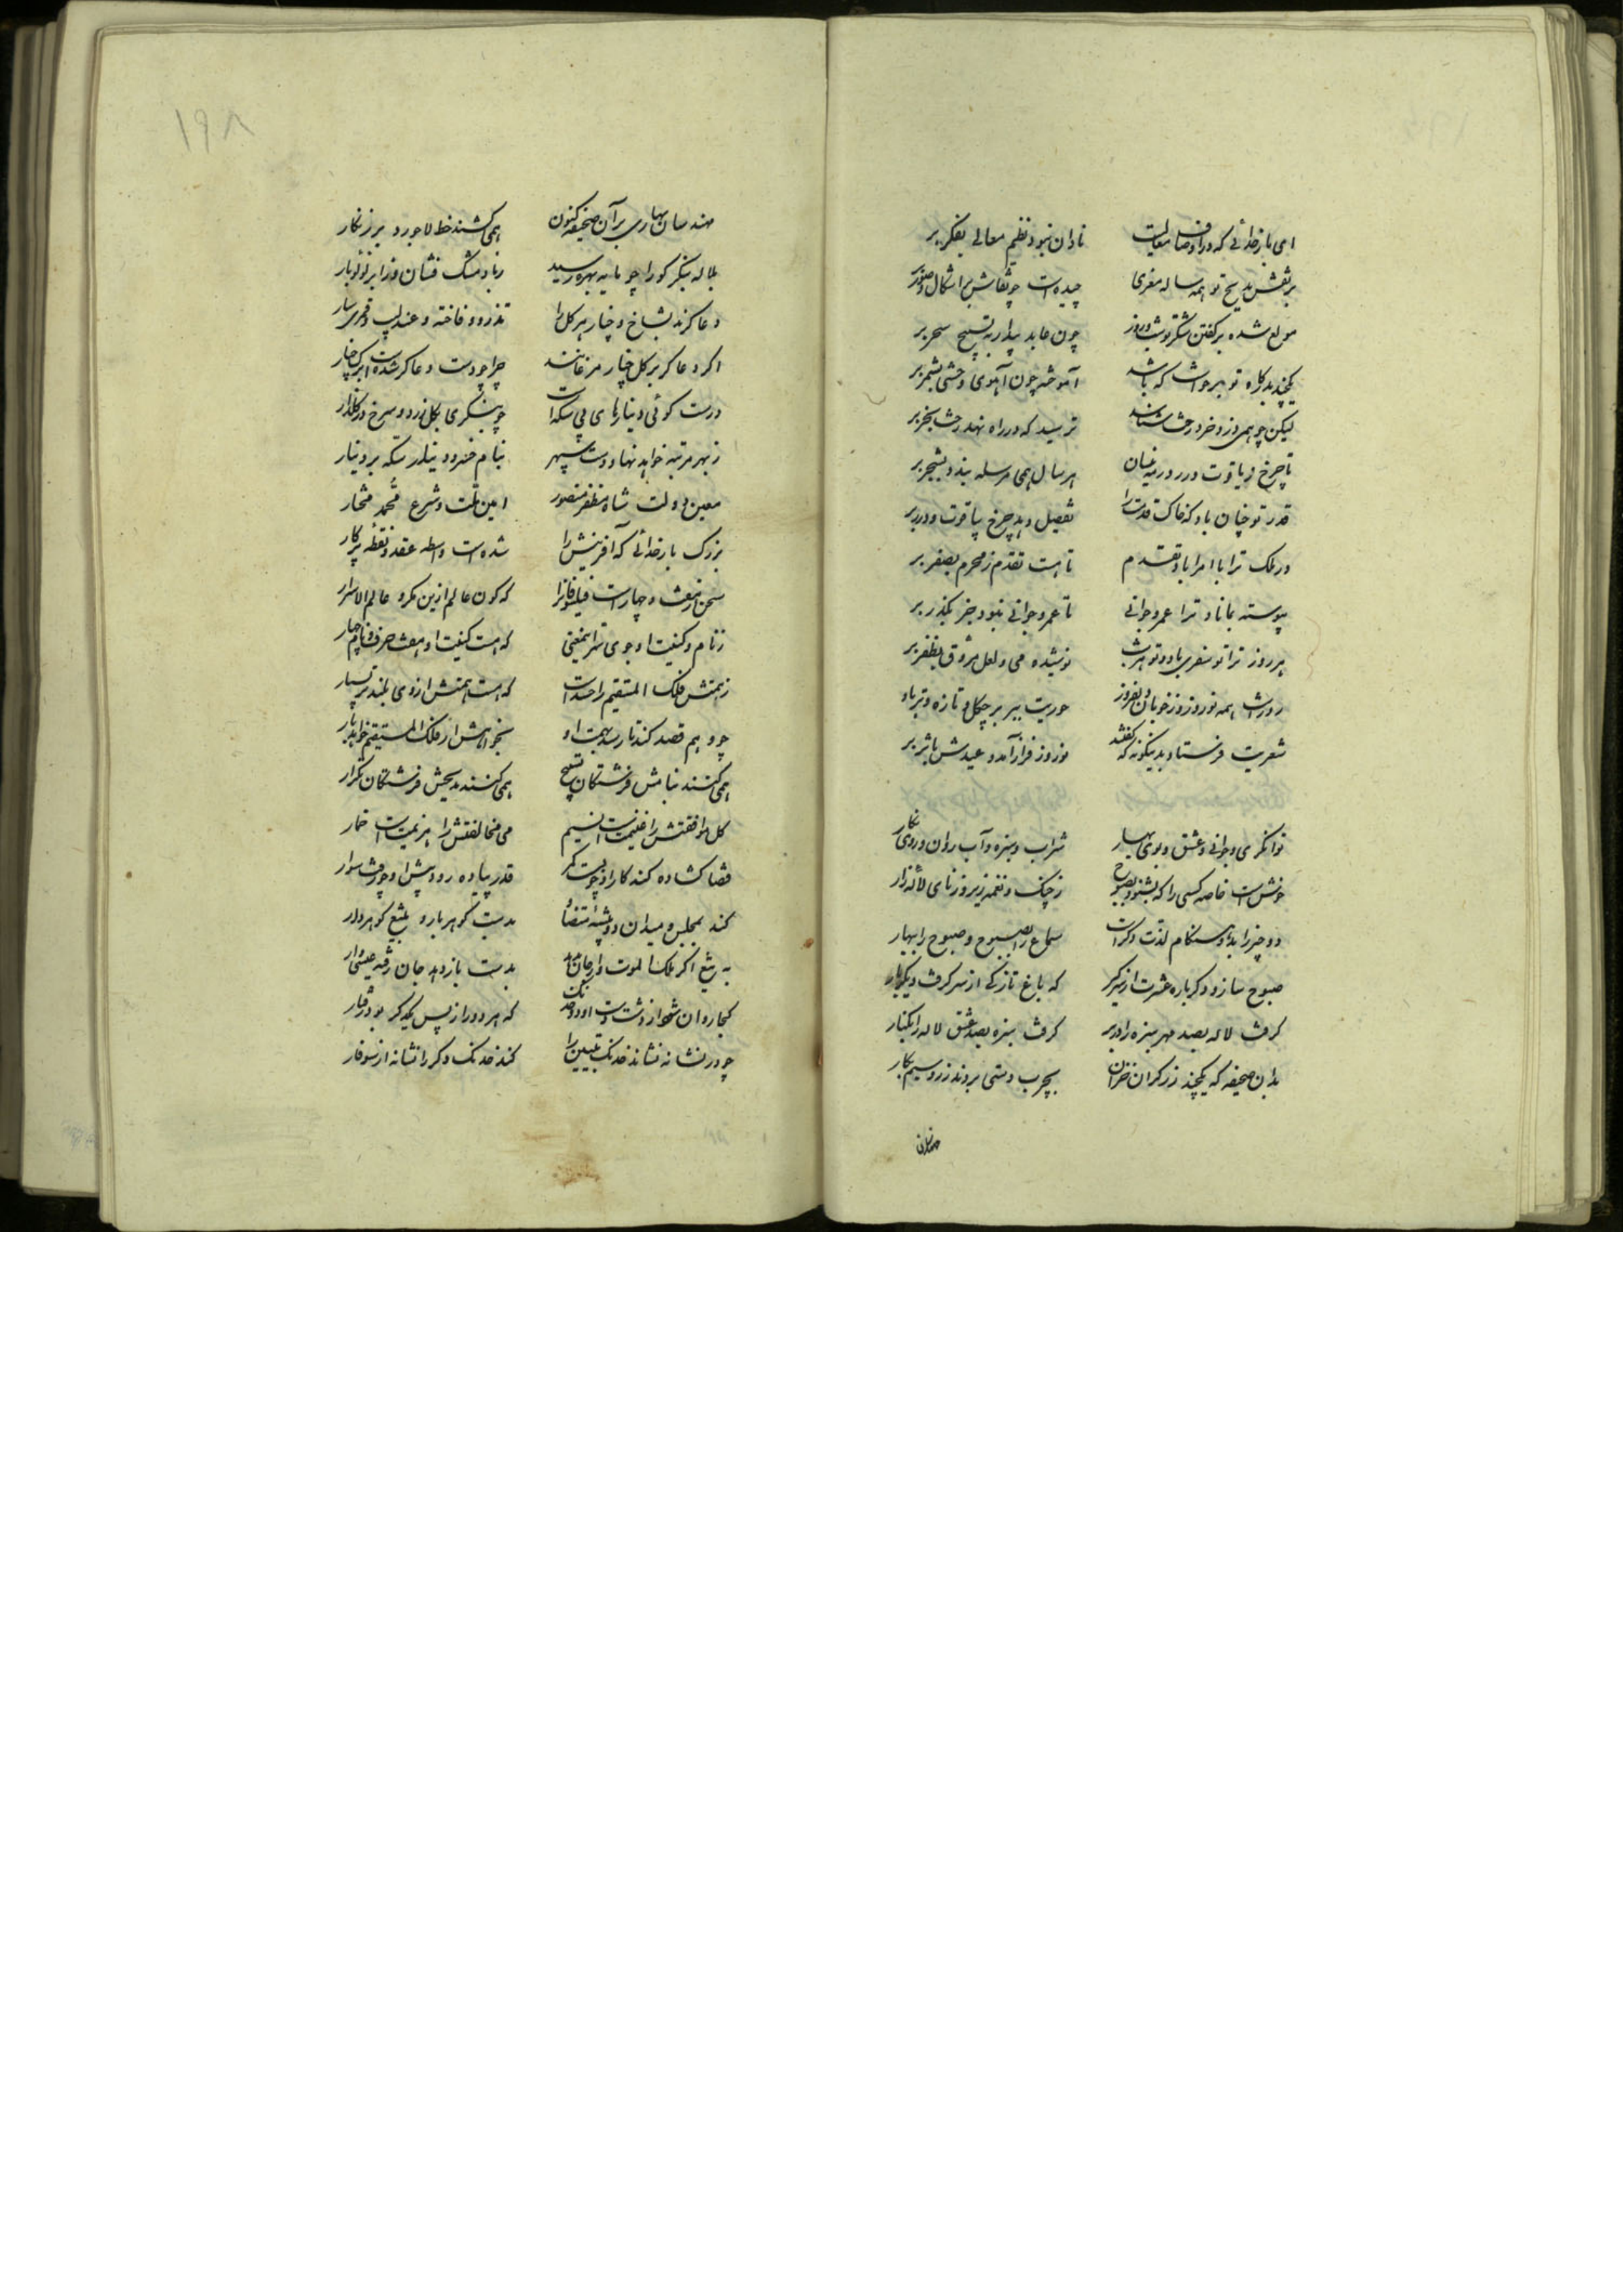 ای بار خدائی که در اوصاف معالیت نادان نبود نظم معالی بفکر بر
بر نقش مدیح تو همه ساله معزی چیده است چو نقاش بر اشکال و صور بر
مولع شده بر گفتن شکر تو شب و روز چون عابد بیدار به تسبیح سحر بر
یکچند بدرگاه تو بر خواست که باشد آموخته چون آهوی وحشی بشمر بر
لیکن چو همی دزد خرد رخت ستاند ترسید که در راه نهد رخت بخر بر
تا چرخ ز یاقوت و درر در مه نیسان هر سال همی مرسله بندد بشجر بر
قدر تو چنان باد که خاک قدمت را تفضیل دهد چرخ بیاقوت و درر بر
در ملک ترا با امرا باد تقدم تا هست تقدم ز محرم بصفر بر
پیوسته بماناد ترا عمر و جوانی تا عمر و جوانی نبود جز بگذر بر
هر روز ترا نو سفری باد و تو هر شب نوشیده می لعل مروق بظفر بر
روزت همه نوروز و ز خوبان دلفروز حوریت ببر بر چو گل تازه و تر باد
شعریت فرستاد بدینگونه که گفتند نوروز فراز آمد و عیدش باثر بر
توانگری و جوانی و عشق و بوی بهار شراب و سبزه و آب روان و روی نگار
خوش است خاصه کسی را که بشنود بصبوح ز چنگ نغمه زیر و ز نای ناله زار
دو چیز را بدو هنگام لذت دگر است سماع را بصبوح و صبوح را ببهار
صبوح ساز و دگر باره عشرت از سر گیر که باغ تازگی از سر گرفت دیگر بار
گرفت لاله بصد مهر سبزه را در بر گرفت سبزه بصد عشق لاله را بکنار
بدان صحیفه که یکچند زرگران خزان بچرب دستی بردند زر و سیم بکار
مهندسان
۱۹۸
مهندسان بهاری بر آن صحیفه کنون همی کشند خط لاجورد بر زنگار
بلاله بنگر کو را چو مایه بهره رسید ز باد مشک فشان وز ابر لؤلؤ بار
دعا کنند بشاخ و چنار هر گل را تذرو و فاخته و عندلیب و قمری سار
اگر دعا گر بر گل چنار مرغانند چرا چو دست دعا گر شده است برگ چنار
درست گوئی دینارهای بی سکه است چو بنگری بگل زرد و سرخ در گلزار
ز بهر مرتبه خواهد نهاد دست سپهر بنام خسرو دیندار سکه بر دینار
معین دولت شاه مظفر منصور امین ملت و شرع محمد مختار
بزرگ بار خدائی که آفرینش را شده است واسطه عقد و نقطه پرگار
سخن ز هفت و چهار است فیلسوفانرا که کون عالم ازین کرد عالم الاسرار
ز نام و کنیت او جوی سر این معنی که هست کنیت او هفت حرف و نام چهار
ز همتش فلک المستقیم را حسد است که هست همتش از وی بلندتر بسیار
چو وهم قصد کند تا رسد بهمت او نخواهدش از فلک المستقیم خواهد بار
همی کنند بنامش فرشتگان تسبیح همی کنند مدیحش فرشتگان تکرار
گل موافقتش را غنیمت است نسیم می مخالفتش را هزیمت است خمار
قضا گشاده کند کار او چو بست کمر قدر پیاده رود پیش او چو گشت سوار
کند بمجلس و میدان دو پیشه متضاد بدست گوهر بار و بتیغ گوهر دار
به تیغ اگر ملک الموت وار جان ببرد بدست باز دهد جان رفته عیسی وار
کجا روان شود از شست و دست او دو خدنگ که هر دو را ز پس یکدگر بود رفتار
چو در نشانه نشاند خدنگ پیشین را کند خدنگ دگر را نشانه از سوفار